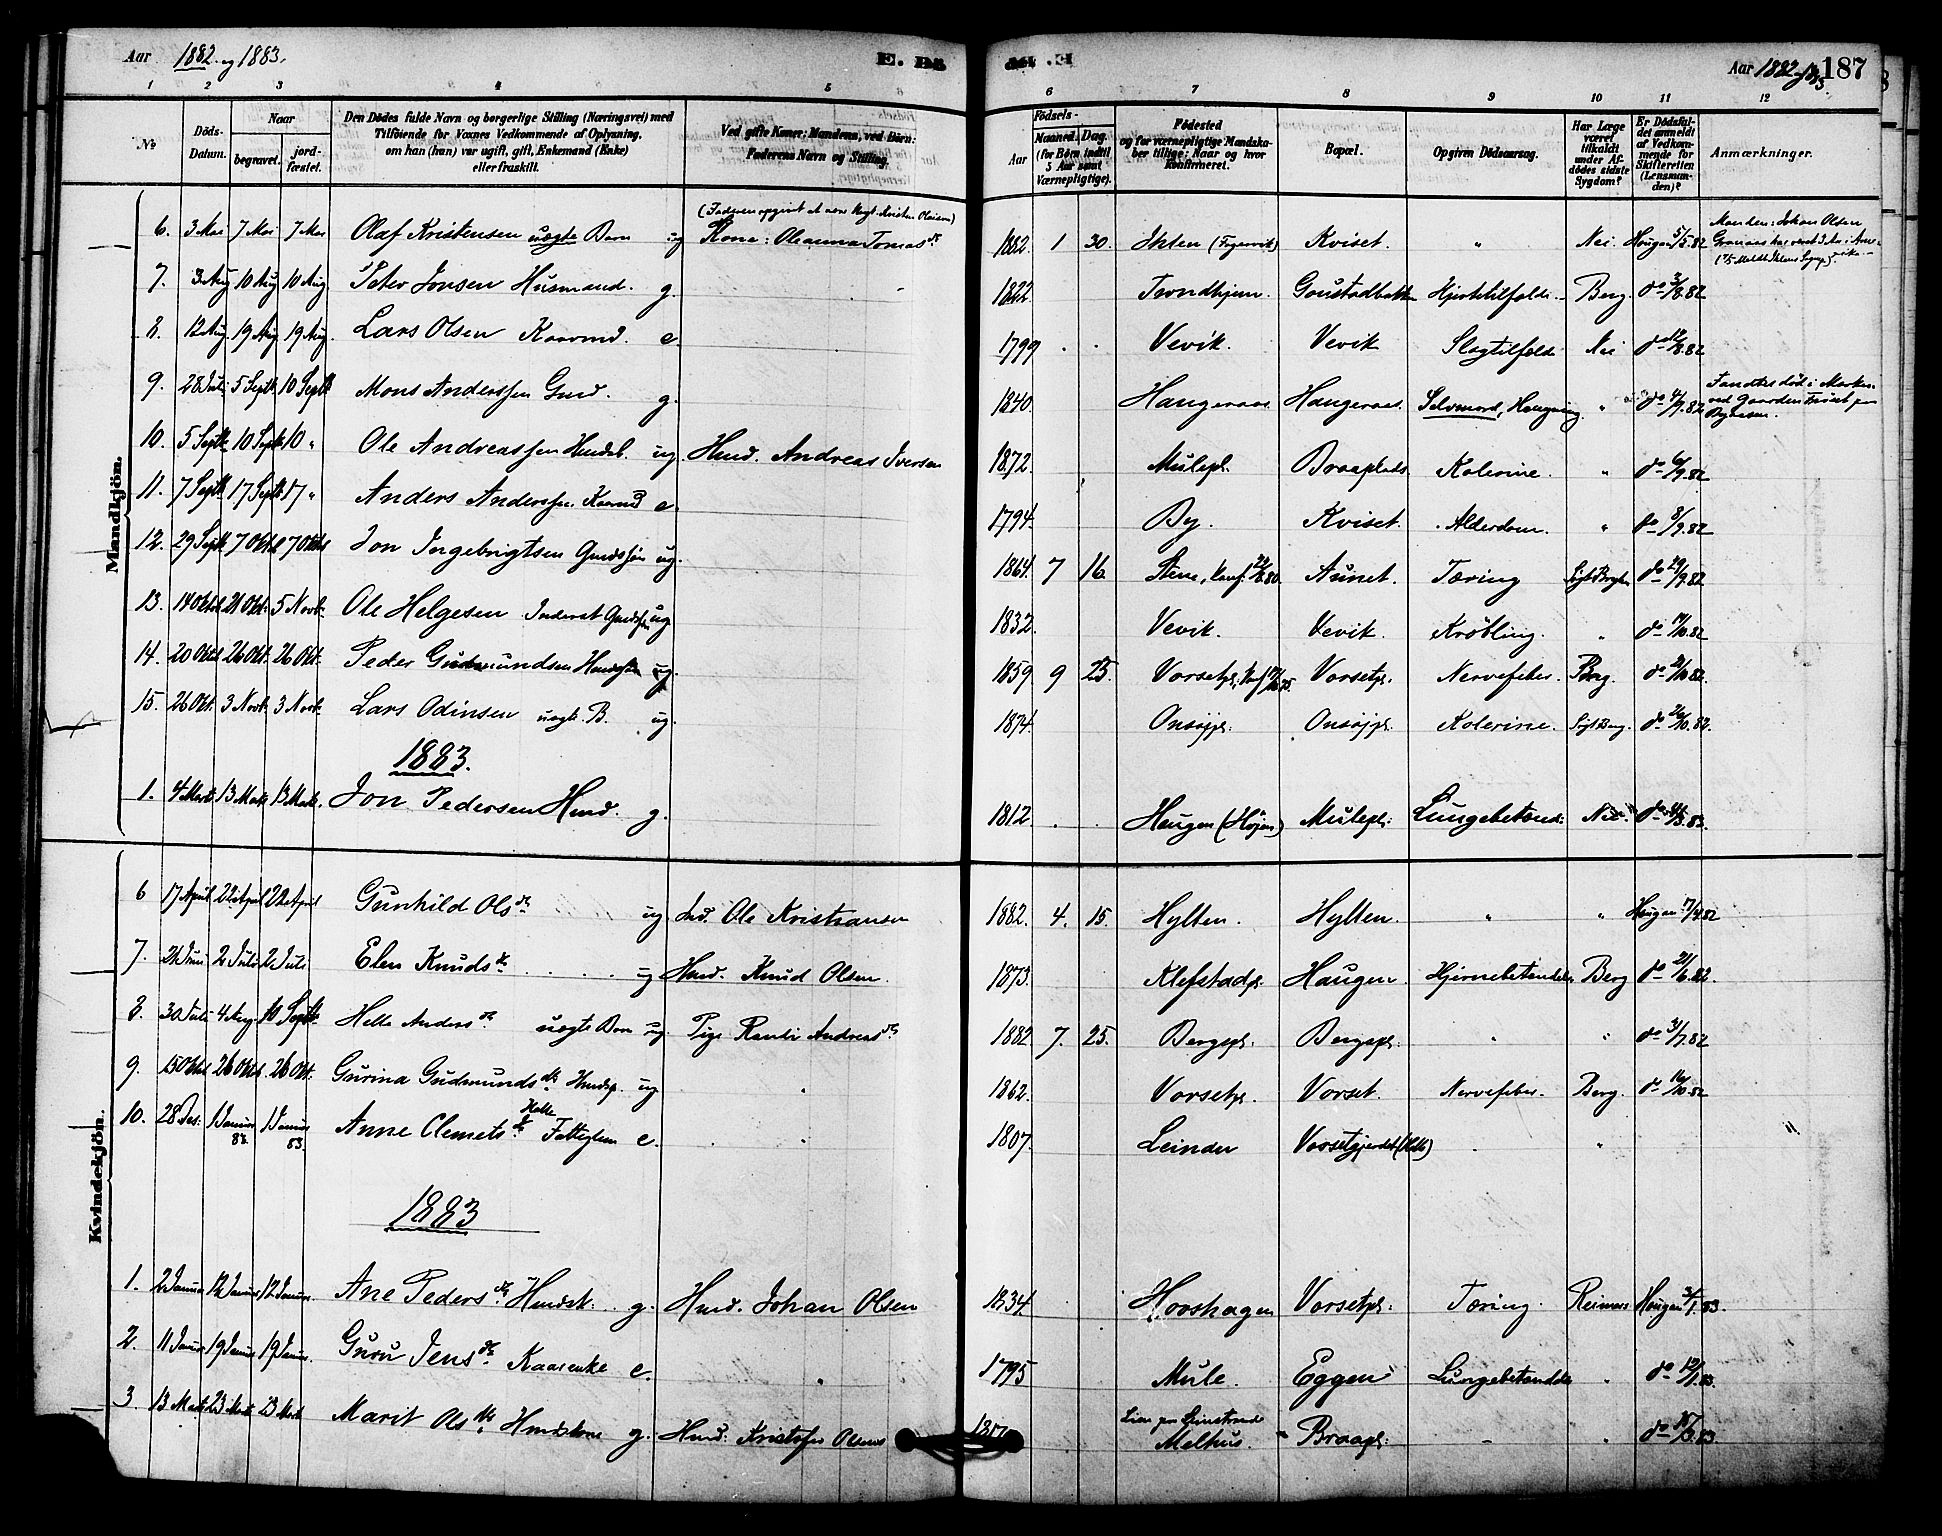 Aar 1882 og 1883.
E. Dö
Aar 1882 187
1 2 3 4 5 6 7 8 9 10 11 12
No
Döds-Datum.
Naar
begravet.
jord-fæstet.
Den Dødes fulde Navn og borgerlige Stilling (Næringsvei) med
Tilføiende for Voxnes Vedkommende af Oplysning,
om han (hun) var ugift, gift, Enkemand (Enke)
eller fraskilt.
Ved gifte Koner: Mandens, ved Børn:
Faderens Navn og Stilling.
Fødsels-
Aar
Maaned. Dag.
(for Børn indtil
5 Aar samt
Værnepligtige).
Fødested
og for værnepligtige Mandska-
ber tillige: Naar og hvor
Konfirmeret.
Bopæl.
Opgiven Dødsaarsag.
Har Læge
været
tilkaldt
under Af-
dødes sidste
Sygdom?
Er Dødsfal-
det anmeldt
af Vedkom-
mende for
Skifteretten
(Lensman-
den)?
Anmærkninger.
Mandkjön.
6. 3 Mai 7 Mai 7 Mai Olaf Kristensen uægte Barn ug Kone: Oleanna Tomasdr 1882 1 30. Kviset. " Nei. Haugen 5/5.82
7. 3 Aug 10 Aug 10 Aug Peter Jonsen Husmand. g. 1822 Trondhjem. Hjertetilfælde Berg. do 3/8.82
8. 12 Aug 19 Aug 19 Aug Lars Olsen Kaarmd. e. 1799 Vevik. Vevik Slagtilfælde Nei do 12/8.82
9. 28 Juli 5 Septb 10 Septb Mons Anderssen Gmd. g. 1840. Haugeraas. Haugeraas. Selvmord, Hængning " do 4/9.82 Fandtes død i Marken ved Gaarden
10. 5 Septb 10 Septb 10 " Ole Andreassen Hmdsb. ug. Hmd. Andreas Iversen 1872. Mulepl. Braaplads Kolerine. " do 6/9.82
11. 7 Septb 17 Septb 17 " Anders Anderssen Kaarmd e. 1794. By. Kviset. Alderdom. " do 8/9.82
12. 29 Septb 7 Oktb 7 Oktb Jon Ingebrigtsen Gmdssøn ug. 1864. 7 16. Aunet. Tæring do 29/9.82
13. 14 Oktb 21 Okt. 5 Novb. Ole Helgesen Inderst Gmdssøn ug. 1832. Vevik. Vevik. Krøbling. " do 14/10.82
14. 20 Oktb 26 Okt. 26 Okt. Peder Gudmundsen Hmdssøn ug. 1859. 9 25. Vorsetpl. Vorsetpl. Nervefeber. Berg. do 21/10.82.
15. 26 Okt. 3 Novb. 3 Novb. Lars Odinsen uægte B. ug. 1874. Onsøjpl. Onsøjpl. Kolerine. do 26/10.82.
1883.
1. 4 Marts 13 Mats 13 Mats. Jon Pedersen Hmd. g. 1812. Haugen (Højen) Mulepl. Lungebetænd: Nei.
Kvindekjön.
6 17 April 22 April 22 April Gunhild Olsdr ug Ole Kristiansen 1882. 4. 15. Hylten. Hylten. " " Haugen 17/4.82
7. 21 Juni 2 Juli 2 Juli Elen Knudsdr ug Hmd. Knud Olsen. 1873. Klefstadpl. Haugen. Hjernebetændelse Berg do 21/6.82
8. 30 Juli 4 Aug. 10 Septb. Helle Andersdr uægte Barn ug. Pige Randi Andreasdr 1882 7. 25. Bergspl. Bergspl. " " do 31/7.82
9. 15 Oktb 26 Oktb 26 Okt. Gurina Gudmundsdr Hmdsp. ug " 1862. Vorsetpl. Vorset. Nervefeber. Berg. do 16/10.82
10. 28 Des. 1 Januar 83. 1 Januar 83. Anne Clemetsdr Helle Fattiglem e. " 1807. Leinden " "
1883
1. 2 Januar 12 Januar 12 Januar. Ane Pedersdr Hmdsk. g. Hmd. Johan Olsen 1834. Horshagen Vorsetpl. Tæring. Haugen 3/1.83.
2. 11 Januar 19 Januar 19 Januar. Guru Jensdr Kaarenke e. " 1795 Mule. Eggen Lungebetændelse " do 12/1.83.
3 13 Mats 23 Mats. 23 Mats Marit Olsdr Hmdskone g. Hmd. Kristofer Olsen Melhus. Braapl. " do 15/3.83